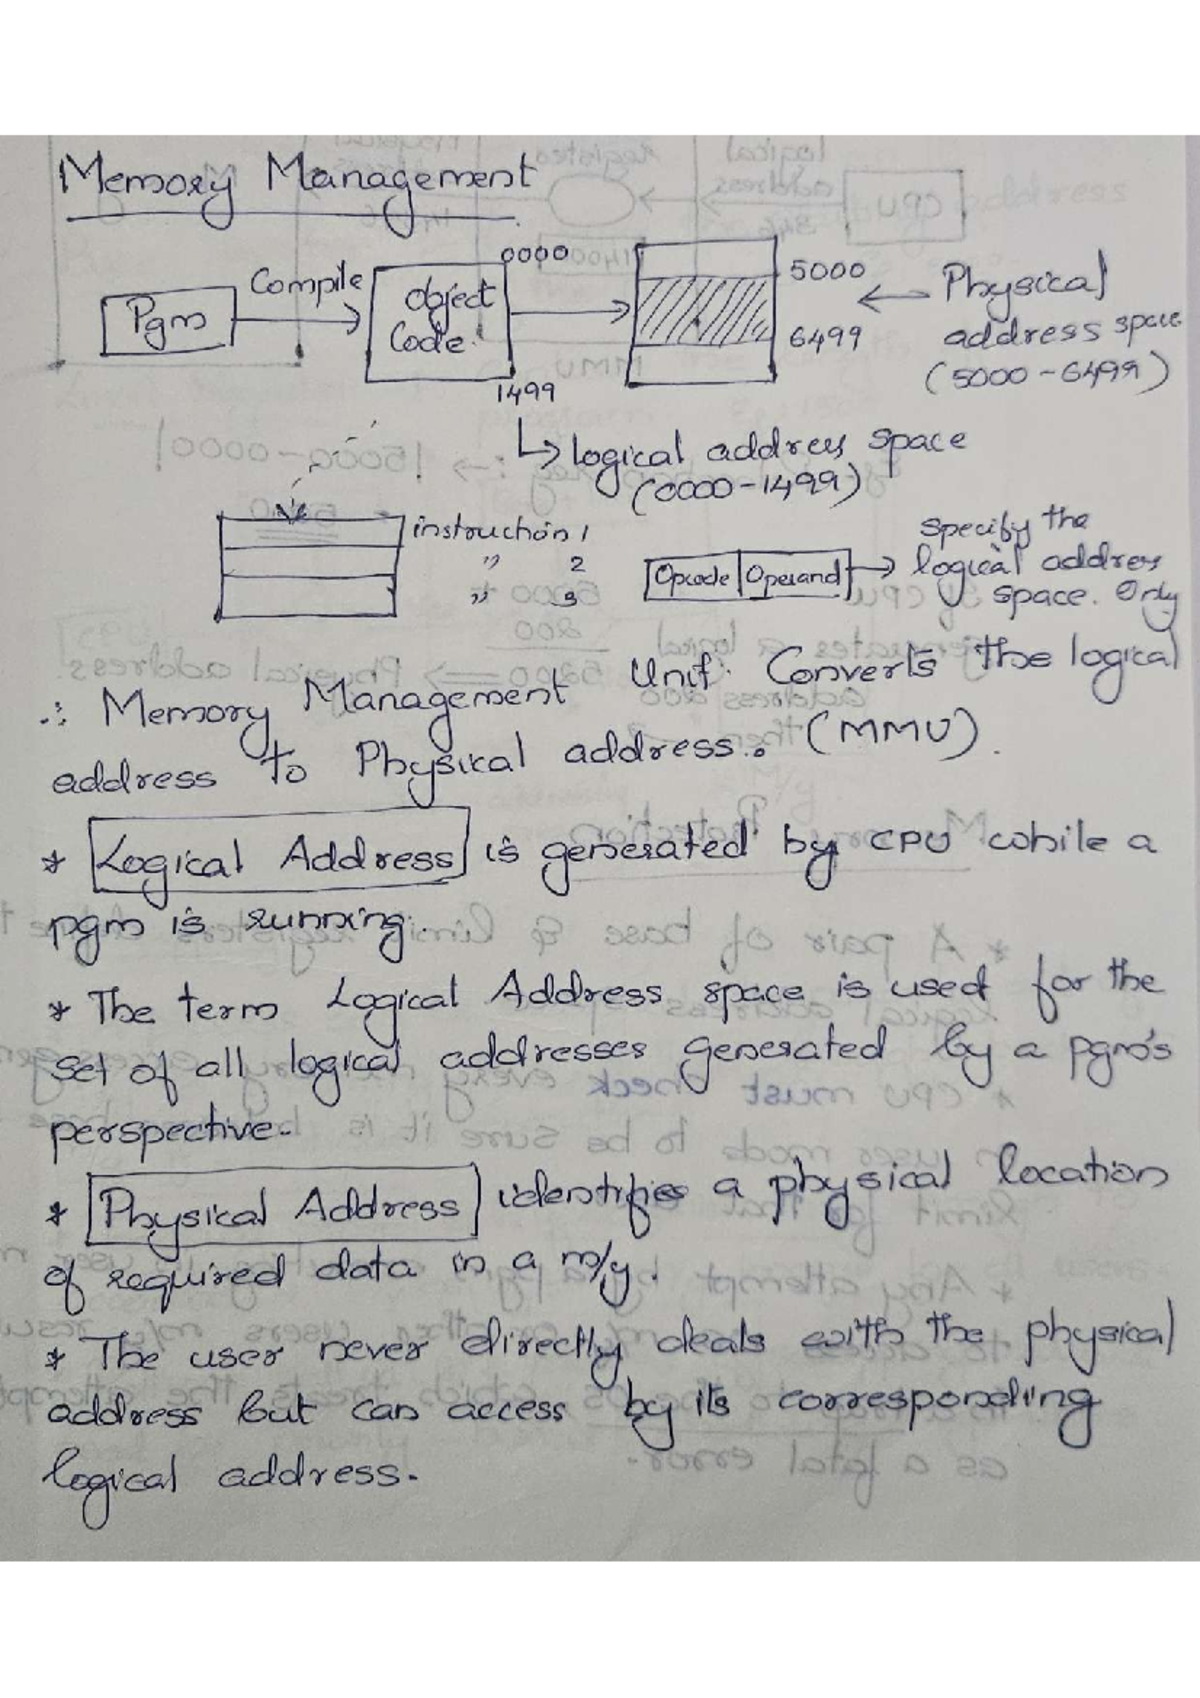 Memory Management
Pgm
Compile
Object
Code.
0000
1499
5000
6499
Physical
address space
(5000-6499)
logical address space
(0000-1499)
instruction 1
" 2
" 3
Opcode Operand
Specify the
logical address
space. Only
∴ Memory Management Unit. Converts the logical
address to Physical address. (MMU).
* Logical Address is generated by CPU while a
pgm is running.
* The term Logical Address space is used for the
set of all logical addresses generated by a pgm's
perspective.
* Physical Address identifies a physical location
of required data in a m/y.
* The user never directly deals with the physical
address but can access by its corresponding
logical address.